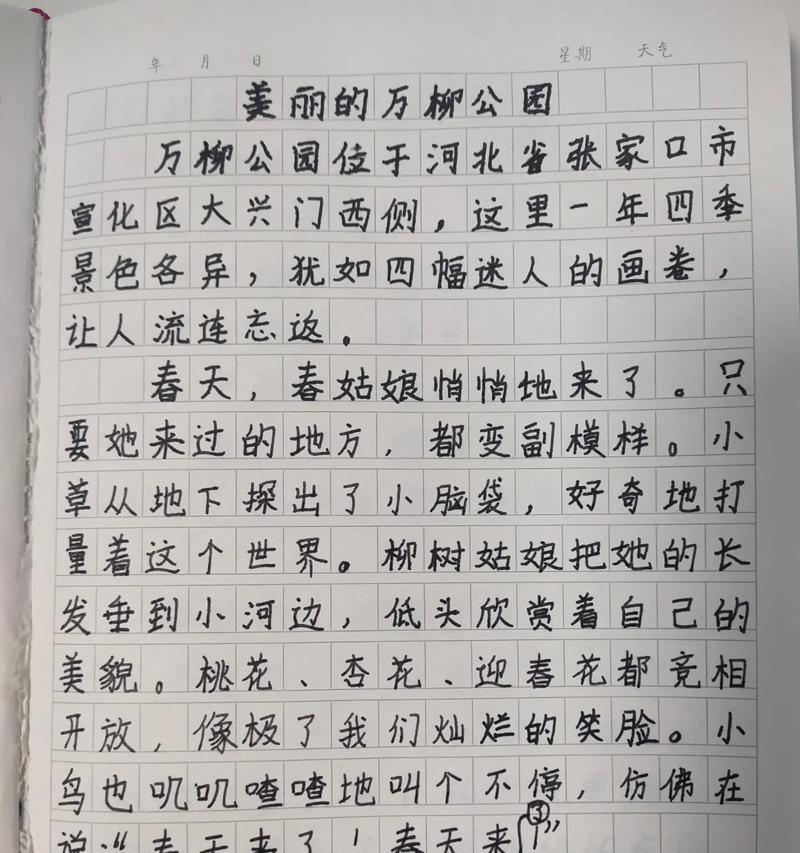 年 月 日 星期 天气
美丽的万柳公园
万柳公园位于河北省张家口市
宣化区大兴门西侧，这里一年四季
景色各异，犹如四幅迷人的画卷，
让人流连忘返。
春天，春姑娘悄悄地来了。只
要她来过的地方，都变副模样。小
草从地下探出了小脑袋，好奇地打
量着这个世界。柳树姑娘把她的长
发垂到小河边，低头欣赏着自己的
美貌。桃花、杏花、迎春花都竞相
开放，像极了我们灿烂的笑脸。小
鸟也叽叽喳喳地叫个不停，仿佛在
说：“春天来了！春天来了！”